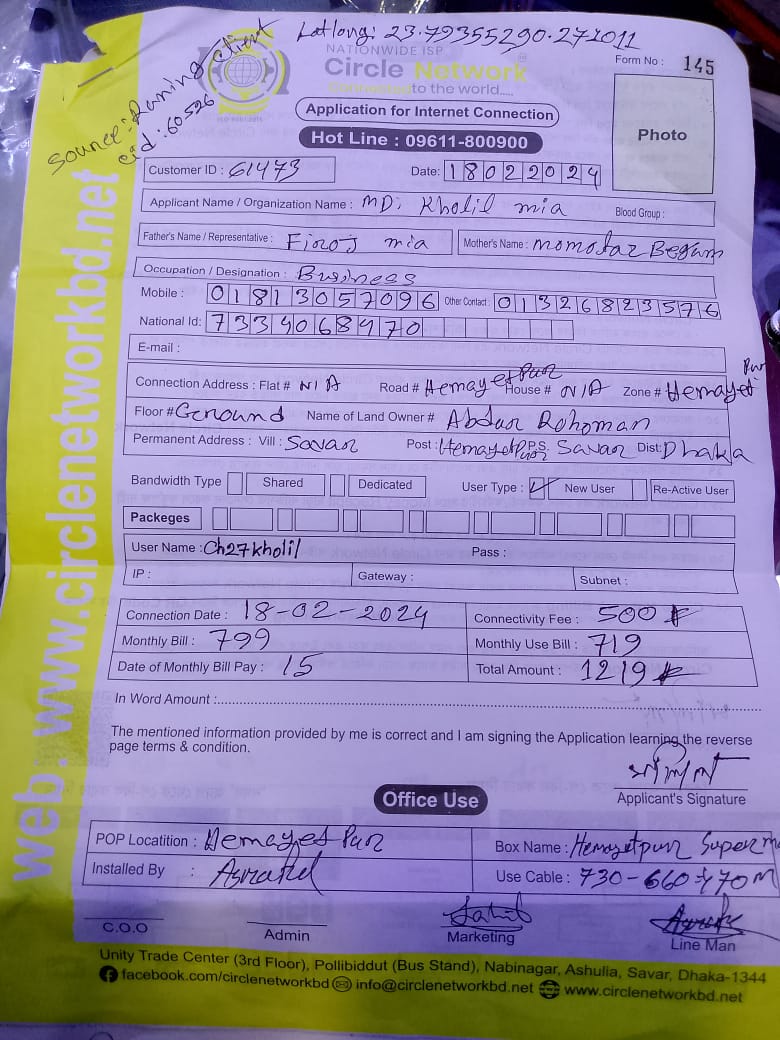 Latlong: 23.79355290.271011
Source: Raning client
cid: 60526
NATIONWIDE ISP
Circle Network
Connected to the world.....
Form No : 145
Application for Internet Connection
Hot Line : 09611-800900
Photo
Customer ID : 61473 Date: 18022024
Applicant Name / Organization Name : MD. Kholil mia Blood Group :
Father's Name / Representative : Firoj mia Mother's Name : momotaz Begum
Occupation / Designation : Business
Mobile : 01813057096 Other Contact : 01326823576
National Id: 7334068470
E-mail :
Connection Address : Flat # N/A Road # HemayetPur House # N/A Zone # Hemayet Pur
Floor # Ground Name of Land Owner # Abdur Rohoman
Permanent Address : Vill : Savar Post : HemayetPur P.S. Savar Dist: Dhaka
Bandwidth Type Shared Dedicated User Type : New User Re-Active User
Packeges
User Name : Ch27kholil Pass :
IP : Gateway : Subnet :
Connection Date : 18-02-2024 Connectivity Fee : 500
Monthly Bill : 799 Monthly Use Bill : 719
Date of Monthly Bill Pay : 15 Total Amount : 1219
In Word Amount :
The mentioned information provided by me is correct and I am signing the Application learning the reverse
page terms & condition.
Applicant's Signature
Office Use
POP Locatition : Hemayet Pur Box Name : Hemayetpur Super
Installed By : Asraful Use Cable : 730-660 70M
C.O.O Admin Marketing Line Man
Unity Trade Center (3rd Floor), Pollibiddut (Bus Stand), Nabinagar, Ashulia, Savar, Dhaka-1344
facebook.com/circlenetworkbd info@circlenetworkbd.net www.circlenetworkbd.net
web: www.circlenetworkbd.net